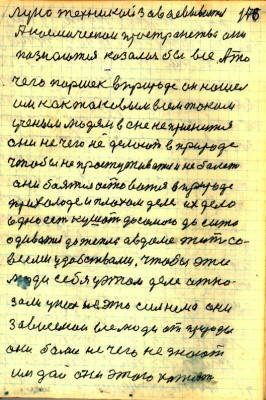 луно техникой завоевывают 146
А космическое пространство они
познают казалось бы все. А то
чего порщек в природе он нашел
им как таковым всем таким
ученым людям в сне не приснится
они не чего не делают в природе
чтобы не простуживатся и не болеть
они боятся оставатся в природе
при холоде и плохом деле их дело
одно ест кушат досыта до сыта
одиватся до тепла а в доме жит со
всеми удобствами, чтобы эти
люди себя в этом деле отка
зали у них на это сил нема они
зависемые все люди от природы
они более не чего не знают
им дай они этого хотят